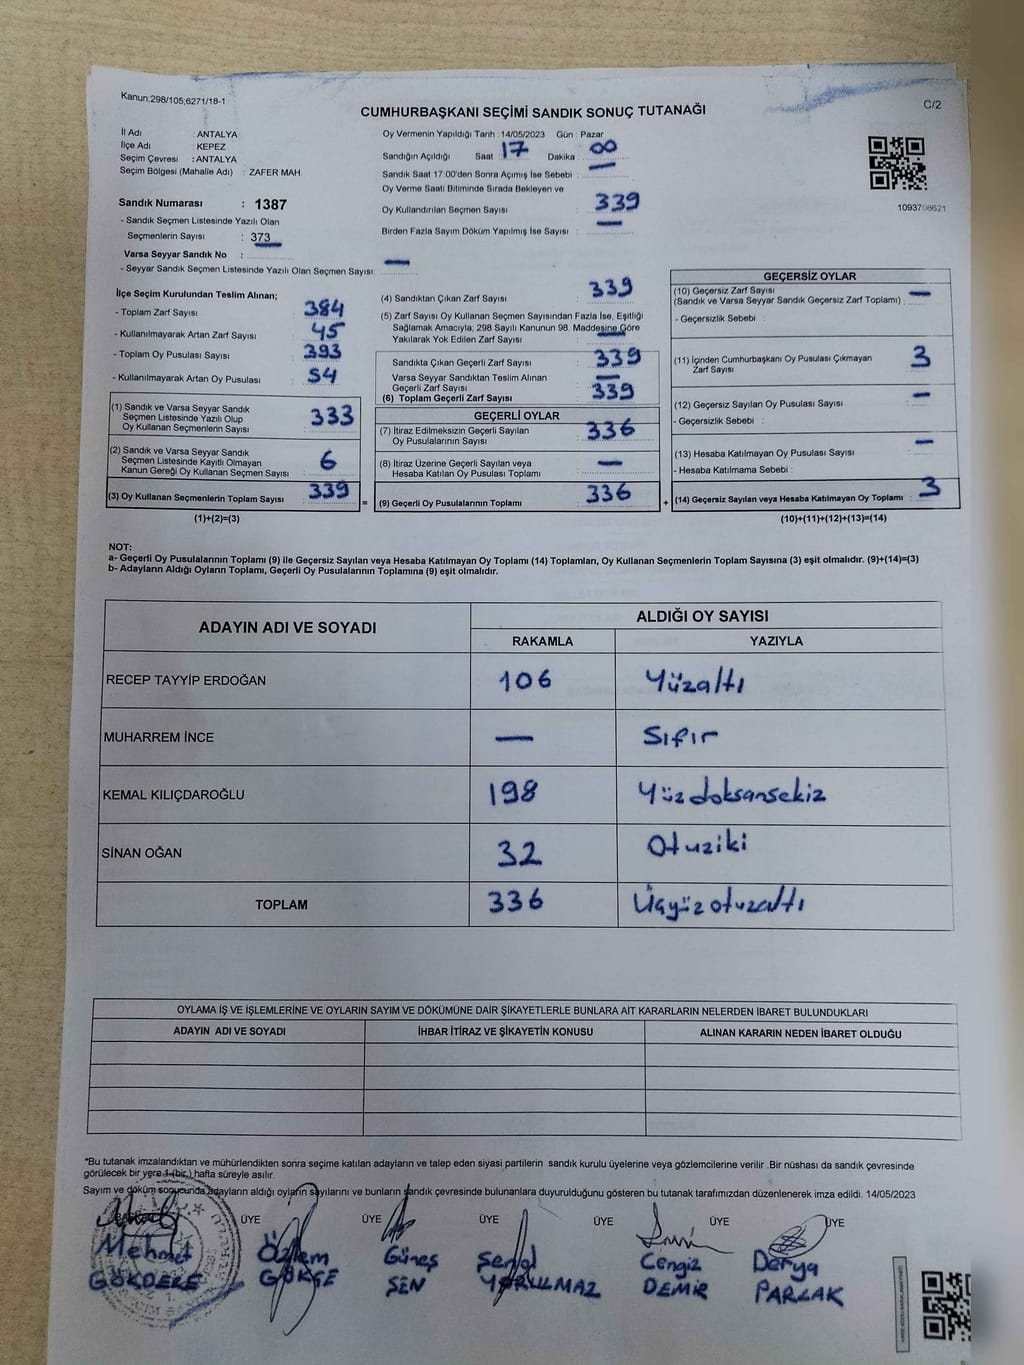 Kanun:298/105,6271/18-1
CUMHURBAŞKANI SEÇİMİ SANDIK SONUÇ TUTANAĞI
C/2
İl Adı : ANTALYA
İlçe Adı : KEPEZ
Seçim Çevresi : ANTALYA
Seçim Bölgesi (Mahalle Adı) : ZAFER MAH.
Oy Vermenin Yapıldığı Tarih : 14/05/2023 Gün : Pazar
Sandığın Açıldığı Saat 17 Dakika 00
Sandık Saat 17:00'den Sonra Açımış İse Sebebi : —
Oy Verme Saati Bitiminde Sırada Bekleyen ve
Oy Kullandırılan Seçmen Sayısı : 339
Birden Fazla Sayım Döküm Yapılmış İse Sayısı : —
1093708621
Sandık Numarası : 1387
- Sandık Seçmen Listesinde Yazılı Olan
Seçmenlerin Sayısı : 373
Varsa Seyyar Sandık No : —
- Seyyar Sandık Seçmen Listesinde Yazılı Olan Seçmen Sayısı: —
İlçe Seçim Kurulundan Teslim Alınan;
- Toplam Zarf Sayısı : 384
- Kullanılmayarak Artan Zarf Sayısı : 45
- Toplam Oy Pusulası Sayısı : 393
- Kullanılmayarak Artan Oy Pusulası : 54
(1) Sandık ve Varsa Seyyar Sandık
Seçmen Listesinde Yazılı Olup
Oy Kullanan Seçmenlerin Sayısı : 333
(2) Sandık ve Varsa Seyyar Sandık
Seçmen Listesinde Kayıtlı Olmayan
Kanun Gereği Oy Kullanan Seçmen Sayısı : 6
(3) Oy Kullanan Seçmenlerin Toplam Sayısı : 339
(1)+(2)=(3)
(4) Sandıktan Çıkan Zarf Sayısı : 339
(5) Zarf Sayısı Oy Kullanan Seçmen Sayısından Fazla İse, Eşitliği
Sağlamak Amacıyla; 298 Sayılı Kanunun 98. Maddesine Göre
Yakılarak Yok Edilen Zarf Sayısı : —
Sandıkta Çıkan Geçerli Zarf Sayısı : 339
Varsa Seyyar Sandıktan Teslim Alınan
Geçerli Zarf Sayısı : —
(6) Toplam Geçerli Zarf Sayısı : 339
GEÇERLİ OYLAR
(7) İtiraz Edilmeksizin Geçerli Sayılan
Oy Pusulalarının Sayısı : 336
(8) İtiraz Üzerine Geçerli Sayılan veya
Hesaba Katılan Oy Pusulası Toplamı : —
= (9) Geçerli Oy Pusulalarının Toplamı : 336 +
GEÇERSİZ OYLAR
(10) Geçersiz Zarf Sayısı
(Sandık ve Varsa Seyyar Sandık Geçersiz Zarf Toplamı) : —
- Geçersizlik Sebebi :
(11) İçinden Cumhurbaşkanı Oy Pusulası Çıkmayan
Zarf Sayısı : 3
(12) Geçersiz Sayılan Oy Pusulası Sayısı : —
- Geçersizlik Sebebi :
(13) Hesaba Katılmayan Oy Pusulası Sayısı : —
- Hesaba Katılmama Sebebi :
(14) Geçersiz Sayılan veya Hesaba Katılmayan Oy Toplamı : 3
(10)+(11)+(12)+(13)=(14)
NOT:
a- Geçerli Oy Pusulalarının Toplamı (9) ile Geçersiz Sayılan veya Hesaba Katılmayan Oy Toplamı (14) Toplamları, Oy Kullanan Seçmenlerin Toplam Sayısına (3) eşit olmalıdır. (9)+(14)=(3)
b- Adayların Aldığı Oyların Toplamı, Geçerli Oy Pusulalarının Toplamına (9) eşit olmalıdır.
ADAYIN ADI VE SOYADI
ALDIĞI OY SAYISI
RAKAMLA YAZIYLA
RECEP TAYYİP ERDOĞAN 106 Yüzaltı
MUHARREM İNCE — Sıfır
KEMAL KILIÇDAROĞLU 198 Yüzdoksansekiz
SİNAN OĞAN 32 Otuziki
TOPLAM 336 Üçyüzotuzaltı
OYLAMA İŞ VE İŞLEMLERİNE VE OYLARIN SAYIM VE DÖKÜMÜNE DAİR ŞİKAYETLERLE BUNLARA AİT KARARLARIN NELERDEN İBARET BULUNDUKLARI
ADAYIN ADI VE SOYADI İHBAR İTİRAZ VE ŞİKAYETİN KONUSU ALINAN KARARIN NEDEN İBARET OLDUĞU
*Bu tutanak imzalandıktan ve mühürlendikten sonra seçime katılan adayların ve talep eden siyasi partilerin sandık kurulu üyelerine veya gözlemcilerine verilir .Bir nüshası da sandık çevresinde
görülecek bir yere 1 (bir ) hafta süreyle asılır.
Sayım ve döküm sonucunda adayların aldığı oyların sayılarını ve bunların sandık çevresinde bulunanlara duyurulduğunu gösteren bu tutanak tarafımızdan düzenlenerek imza edildi. 14/05/2023
BAŞKAN ÜYE ÜYE ÜYE ÜYE ÜYE ÜYE
Mehmet Özlem Güneş Şenol Cengiz Derya
GÖKDERE GÖKÇE ŞEN YORULMAZ DEMİR PARLAK